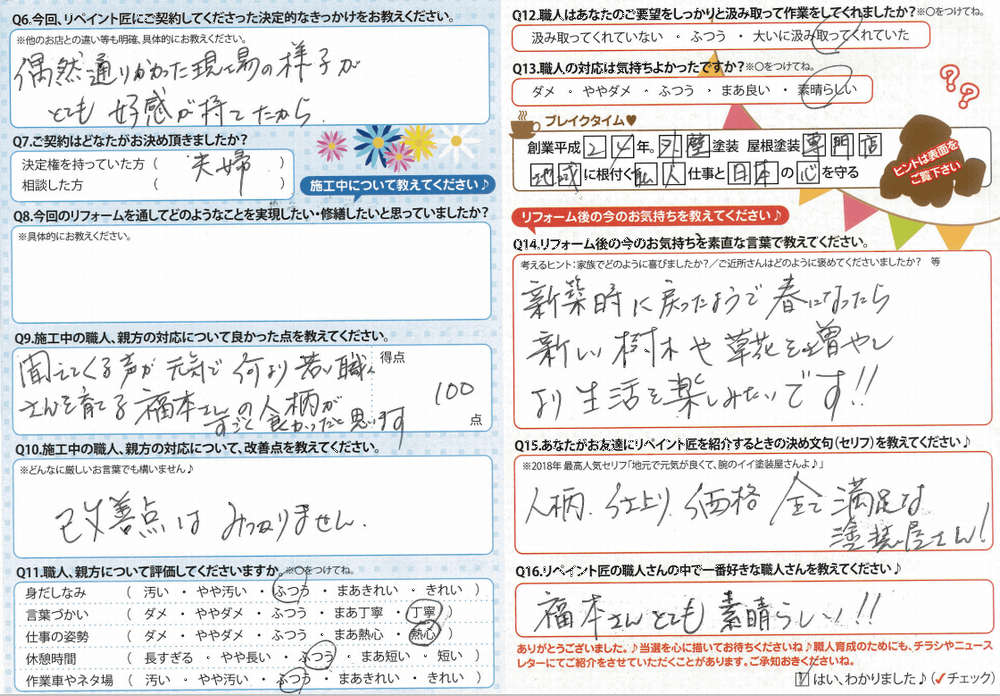 Q6.今回、リペイント匠にご契約してくださった決定的なきっかけをお教えください。
※他のお店との違い等も明確、具体的にお教えください。
偶然通りかかった現場の様子が
とても好感が持てたから.
Q7.ご契約はどなたがお決め頂きましたか?
決定権を持っていた方( 夫婦 )
相談した方( )
施工中について教えてください♪
Q8.今回のリフォームを通してどのようなことを実現したい・修繕したいと思っていましたか?
※具体的にお教えください。
Q9.施工中の職人、親方の対応について良かった点を教えてください。
聞こえてくる声が元気で何より若い職人
さんを育てる福本さんの人柄が
すごく良かったと思います
得点
100
点
Q10.施工中の職人、親方の対応について、改善点を教えてください。
※どんなに厳しいお言葉でも構いません♪
改善点はみつかりません.
Q11.職人、親方について評価してくださいますか。※○をつけてね。
身だしなみ ( 汚い ・ やや汚い ・ ふつう ・ まあきれい ・ きれい )
言葉づかい ( ダメ ・ ややダメ ・ ふつう ・ まあ丁寧 ・ 丁寧 )
仕事の姿勢 ( ダメ ・ ややダメ ・ ふつう ・ まあ熱心 ・ 熱心 )
休憩時間 ( 長すぎる ・ やや長い ・ ふつう ・ まあ短い ・ 短い )
作業車やネタ場 ( 汚い ・ やや汚い ・ ふつう ・ まあきれい ・ きれい )
Q12.職人はあなたのご要望をしっかりと汲み取って作業をしてくれましたか?※○をつけてね。
汲み取ってくれていない ・ ふつう ・ 大いに汲み取ってくれていた
Q13.職人の対応は気持ちよかったですか?※○をつけてね。
ダメ ・ ややダメ ・ ふつう ・ まあ良い ・ 素晴らしい
ブレイクタイム♥
創業平成24年。外壁塗装 屋根塗装専門店
地域に根付く職人仕事と日本の心を守る
ヒントは表面を
ご覧下さい
リフォーム後の今のお気持ちを教えてください♪
Q14.リフォーム後の今のお気持ちを素直な言葉で教えてください。
考えるヒント:家族でどのように喜びましたか?/ご近所さんはどのように褒めてくださいましたか? 等
新築時に戻ったようで春になったら
新しい樹木や草花を増やし
より生活を楽しみたいです!!
Q15.あなたがお友達にリペイント匠を紹介するときの決め文句(セリフ)を教えてください♪
※2018年 最高人気セリフ「地元で元気が良くて、腕のイイ塗装屋さんよ♪」
人柄.仕上り.価格 全て満足な
塗装屋さん!
Q16.リペイント匠の職人さんの中で一番好きな職人さんを教えてください♪
福本さんとても素晴らしい!!
ありがとうございました。♪当選を心に描いてお待ちくださいね♪職人育成のためにも、チラシやニュース
レターにてご紹介をさせていただくことがあります。ご承知おきくださいね。
はい、わかりました♪(✓チェック)